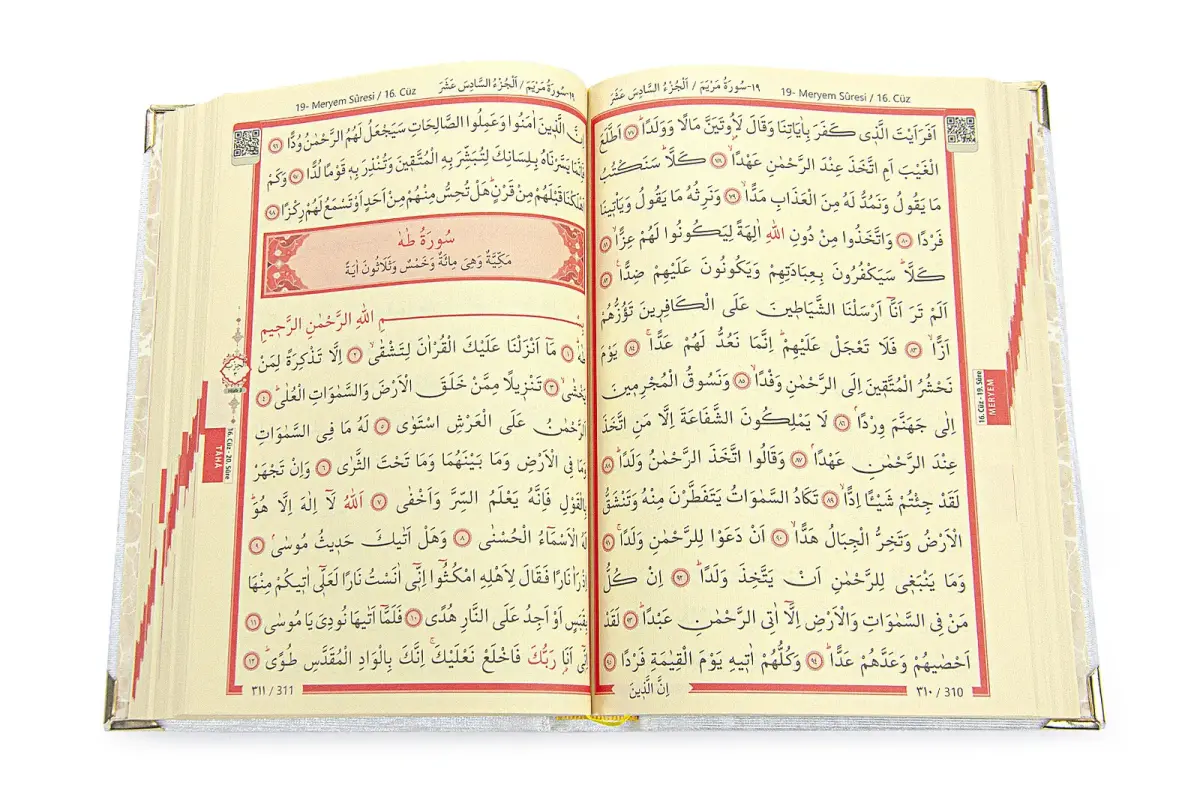 19- Meryem Sûresi / 16. Cüz
١٩-سُورَةُ مَرْيَمَ / اَلْجُزْءُ السَّادِسَ عَشَرَ
اَفَرَاَيْتَ الَّذ۪ي كَفَرَ بِاٰيَاتِنَا وَقَالَ لَاُو۫تَيَنَّ مَالًا وَوَلَدًاۜ ﴿٧٧﴾ اَطَّلَعَ
الْغَيْبَ اَمِ اتَّخَذَ عِنْدَ الرَّحْمٰنِ عَهْدًاۙ ﴿٧٨﴾ كَلَّاۜ سَنَكْتُبُ
مَا يَقُولُ وَنَمُدُّ لَهُ مِنَ الْعَذَابِ مَدًّاۙ ﴿٧٩﴾ وَنَرِثُهُ مَا يَقُولُ وَيَأْت۪ينَا
فَرْدًا ﴿٨٠﴾ وَاتَّخَذُوا مِنْ دُونِ اللّٰهِ اٰلِهَةً لِيَكُونُوا لَهُمْ عِزًّاۙ ﴿٨١﴾
كَلَّاۜ سَيَكْفُرُونَ بِعِبَادَتِهِمْ وَيَكُونُونَ عَلَيْهِمْ ضِدًّا۟ ﴿٨٢﴾
اَلَمْ تَرَ اَنَّٓا اَرْسَلْنَا الشَّيَاط۪ينَ عَلَى الْكَافِر۪ينَ تَؤُزُّهُمْ
اَزًّاۙ ﴿٨٣﴾ فَلَا تَعْجَلْ عَلَيْهِمْۜ اِنَّمَا نَعُدُّ لَهُمْ عَدًّاۚ ﴿٨٤﴾ يَوْمَ
نَحْشُرُ الْمُتَّق۪ينَ اِلَى الرَّحْمٰنِ وَفْدًاۙ ﴿٨٥﴾ وَنَسُوقُ الْمُجْرِم۪ينَ
اِلٰى جَهَنَّمَ وِرْدًاۢ ﴿٨٦﴾ لَا يَمْلِكُونَ الشَّفَاعَةَ اِلَّا مَنِ اتَّخَذَ
عِنْدَ الرَّحْمٰنِ عَهْدًاۢ ﴿٨٧﴾ وَقَالُوا اتَّخَذَ الرَّحْمٰنُ وَلَدًاۜ ﴿٨٨﴾
لَقَدْ جِئْتُمْ شَيْـًٔا اِدًّاۙ ﴿٨٩﴾ تَكَادُ السَّمٰوَاتُ يَتَفَطَّرْنَ مِنْهُ وَتَنْشَقُّ
الْاَرْضُ وَتَخِرُّ الْجِبَالُ هَدًّاۙ ﴿٩٠﴾ اَنْ دَعَوْا لِلرَّحْمٰنِ وَلَدًاۚ ﴿٩١﴾
وَمَا يَنْبَغ۪ي لِلرَّحْمٰنِ اَنْ يَتَّخِذَ وَلَدًاۜ ﴿٩٢﴾ اِنْ كُلُّ
مَنْ فِي السَّمٰوَاتِ وَالْاَرْضِ اِلَّٓا اٰتِي الرَّحْمٰنِ عَبْدًاۜ ﴿٩٣﴾ لَقَدْ
اَحْصٰيهُمْ وَعَدَّهُمْ عَدًّاۜ ﴿٩٤﴾ وَكُلُّهُمْ اٰت۪يهِ يَوْمَ الْقِيٰمَةِ فَرْدًا ﴿٩٥﴾
٣١٠ / 310
اِنَّ الَّذ۪ينَ
16. Cüz - 19. Sûre
MERYEM
19- Meryem Sûresi / 16. Cüz
١٩-سُورَةُ مَرْيَمَ / اَلْجُزْءُ السَّادِسَ عَشَرَ
اِنَّ الَّذ۪ينَ اٰمَنُوا وَعَمِلُوا الصَّالِحَاتِ سَيَجْعَلُ لَهُمُ الرَّحْمٰنُ وُدًّا ﴿٩٦﴾
فَاِنَّمَا يَسَّرْنَاهُ بِلِسَانِكَ لِتُبَشِّرَ بِهِ الْمُتَّق۪ينَ وَتُنْذِرَ بِه۪ قَوْمًا لُدًّا ﴿٩٧﴾ وَكَمْ
اَهْلَكْنَا قَبْلَهُمْ مِنْ قَرْنٍۜ هَلْ تُحِسُّ مِنْهُمْ مِنْ اَحَدٍ اَوْ تَسْمَعُ لَهُمْ رِكْزًا ﴿٩٨﴾
سُورَةُ طٰهٰ
مَكِّيَّةٌ وَهِيَ مِائَةٌ وَخَمْسٌ وَثَلَاثُونَ اٰيَةً
بِسْمِ اللّٰهِ الرَّحْمٰنِ الرَّح۪يمِ
طٰهٰۜ ﴿١﴾ مَٓا اَنْزَلْنَا عَلَيْكَ الْقُرْاٰنَ لِتَشْقٰىۙ ﴿٢﴾ اِلَّا تَذْكِرَةً لِمَنْ
يَخْشٰىۙ ﴿٣﴾ تَنْز۪يلًا مِمَّنْ خَلَقَ الْاَرْضَ وَالسَّمٰوَاتِ الْعُلٰىۜ ﴿٤﴾
اَلرَّحْمٰنُ عَلَى الْعَرْشِ اسْتَوٰى ﴿٥﴾ لَهُ مَا فِي السَّمٰوَاتِ
وَمَا فِي الْاَرْضِ وَمَا بَيْنَهُمَا وَمَا تَحْتَ الثَّرٰى ﴿٦﴾ وَاِنْ تَجْهَرْ
بِالْقَوْلِ فَاِنَّهُ يَعْلَمُ السِّرَّ وَاَخْفٰى ﴿٧﴾ اَللّٰهُ لَٓا اِلٰهَ اِلَّا هُوَۜ
لَهُ الْاَسْمَٓاءُ الْحُسْنٰى ﴿٨﴾ وَهَلْ اَتٰيكَ حَد۪يثُ مُوسٰىۢ ﴿٩﴾
اِذْ رَاٰ نَارًا فَقَالَ لِاَهْلِهِ امْكُثُٓوا اِنّ۪ٓي اٰنَسْتُ نَارًا لَعَلّ۪ٓي اٰت۪يكُمْ مِنْهَا
بِقَبَسٍ اَوْ اَجِدُ عَلَى النَّارِ هُدًى ﴿١٠﴾ فَلَمَّٓا اَتٰيهَا نُودِيَ يَا مُوسٰى ﴿١١﴾
اِنّ۪ٓي اَنَا۬ رَبُّكَ فَاخْلَعْ نَعْلَيْكَۚ اِنَّكَ بِالْوَادِ الْمُقَدَّسِ طُوًىۜ ﴿١٢﴾
٣١١ / 311
16. Cüz - 20. Sûre
TÂHÂ